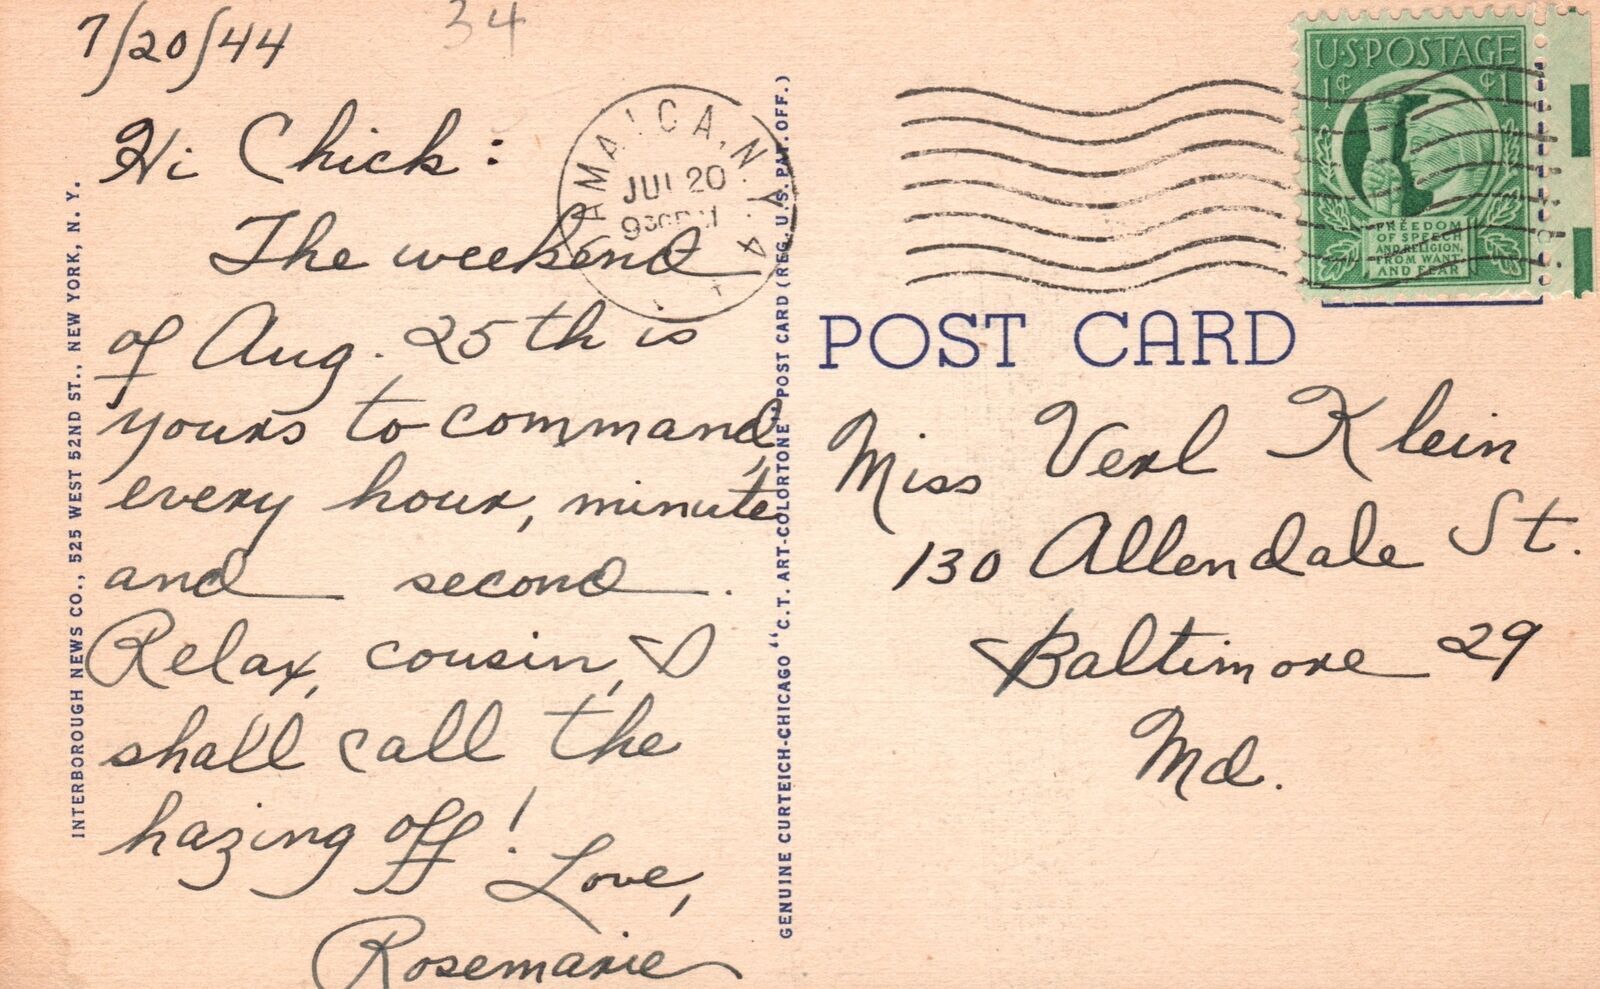 7/20/44
34
Hi Chick:
The weekend
of Aug. 25th is
yours to command,
every hour, minute
and second.
Relax, cousin, I
shall call the
hazing off!
Love,
Rosemarie
INTERBOROUGH NEWS CO., 525 WEST 52ND ST., NEW YORK, N. Y.
GENUINE CURTEICH-CHICAGO "C.T. ART-COLORTONE" POST CARD (REG. U.S. PAT. OFF.)
JAMAICA, N.Y.
JUL 20
U.S. POSTAGE
1¢ ¢1
FREEDOM
OF SPEECH
AND RELIGION,
FROM WANT
AND FEAR
POST CARD
Miss Verl Klein
130 Allendale St.
Baltimore 29
Md.